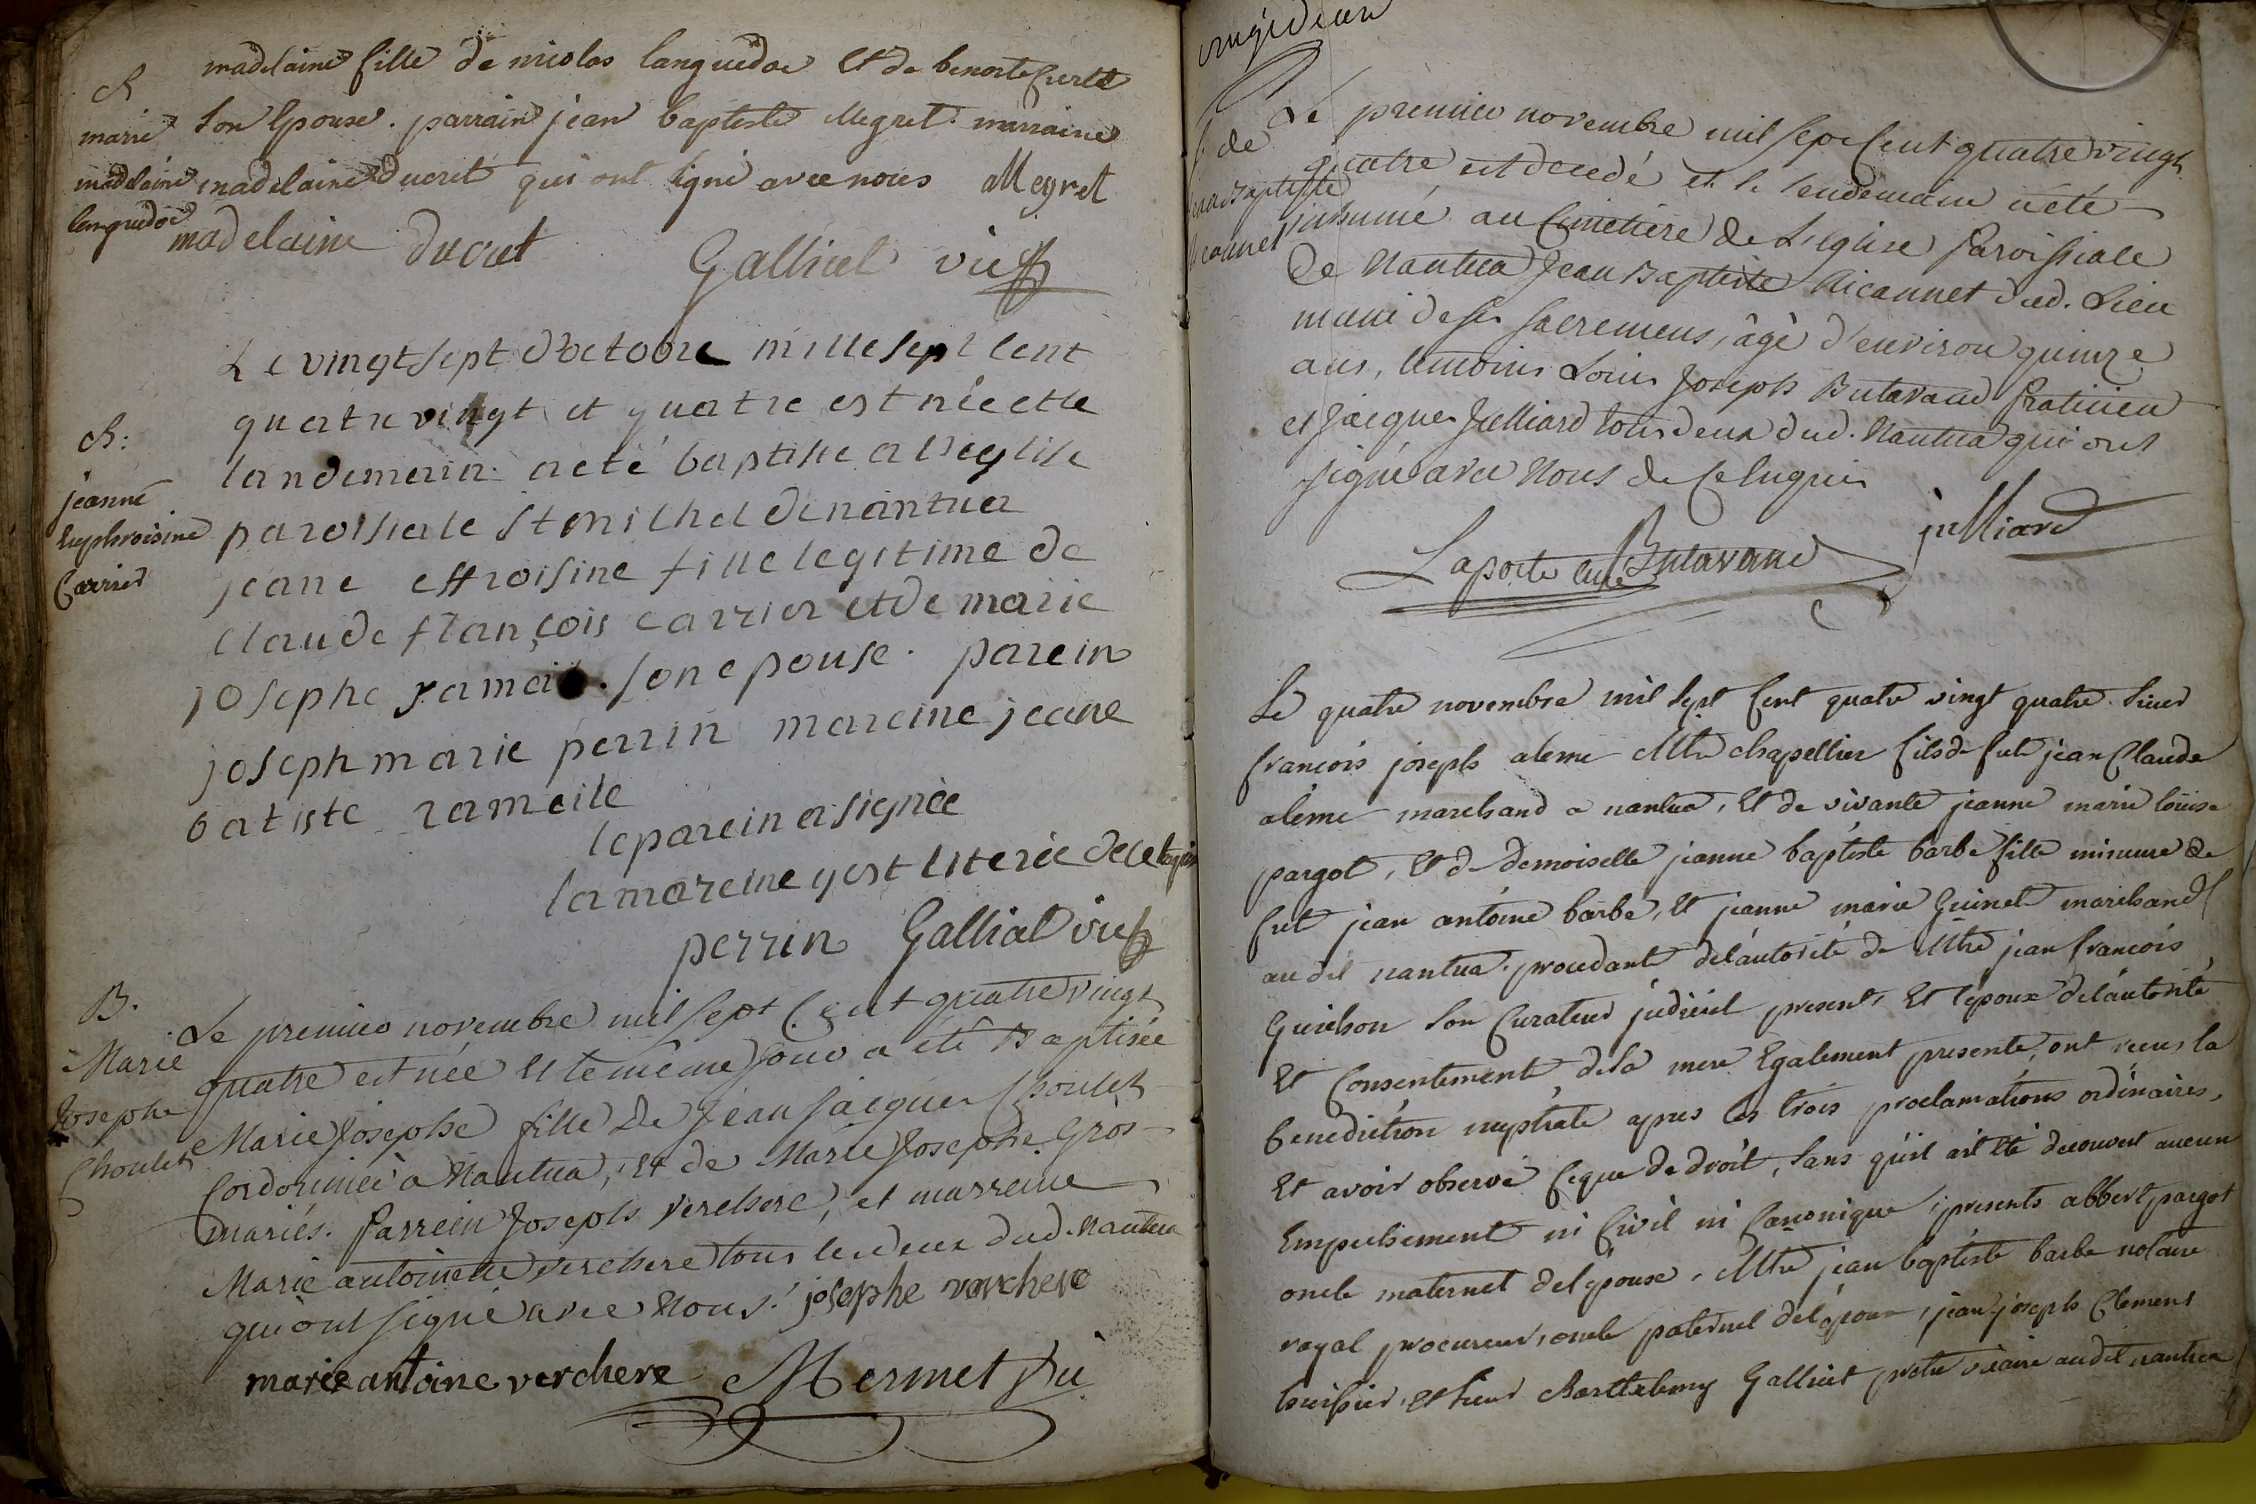 madelaine fille de nicolas languedoc et de benoite
B
son Epouse. parrain jean baptiste Megret. marraine
marie
madelaine
languedoc
madelaine ducret qui ont signé avec nous Megret
madelaine ducret Galliat vic
Le vingt sept d'octobre mille sept cent
quatre vingt et quatre est née et le
B:
landemain a eté baptisée a l'eglise
jeanne
Euphroisine
Carrier
paroisiale st michel de nantua
jeane effroisine fille legitime de
claude françois carrier et de marie
josephe son epouse. parein
joseph marie perrin mareine jeane
batiste rameile
le parein a signée
la mareine y est
perrin Galliat vic
B.
Marie
Josephe
Choulet
Le premier novembre mil sept Cent quatre vingt
quatre est née et le même jour a été Baptisée
Marie Josephe fille de Jean Jacques Choulet
Cordonnier à Nantua, et de Marie Josephe Gros
mariés. Parrein Joseph Verchere, et marreine
Marie antoinette verchere tous les deux dud. Nantua
qui ont signé avec Nous. josephe verchere
marie antoine verchere Mermet vic
S. de
Jean Baptiste
Le premier novembre mil sept Cent quatre vingt
quatre est decedé et le lendemain a été
inhumé au Cimetiere de L'eglise Paroissiale
De Nantua Jean Baptiste dud. Lieu
muni de ses sacremens, âgé d'environ quinze
ans, temoins Louis Joseph Butavand Praticien
et Jacques Juilliard tous deux dud. Nantua qui ont
signé avec Nous de Ce Enquis
Laporte curé Butavand juilliard
Le quatre novembre mil sept Cent quatre vingt quatre sieur
françois joseph aleme Mtre chapellier fils de fut jean Claude
aleme marchand a nantua, et de vivante jeanne marie loüise
pargot, et de demoiselle jeanne baptiste barbe fille mineure de
fut jean antoine barbe, et jeanne marie Guinet marchand
au dit nantua. procedante de l'autorité de Mtre jean françois
Guichon son Curateur judiciel present, et l'epoux de l'autorité
et Consentement de sa mere Egalement presente, ont receus la
benediction nuptiale apres les trois proclamations ordinaires,
et avoir observé Ce que de droit, sans qu'il ait été decouvert aucun
Empechement ni Civil ni Canonique, presents albert pargot
oncle maternel de l'epoux, Mtre jean baptiste barbe notaire
royal procureur, oncle paternel de l'epouse, jean joseph Clement
huissier, et sieur Barthelemy Galliat pretre vicaire audit nantua